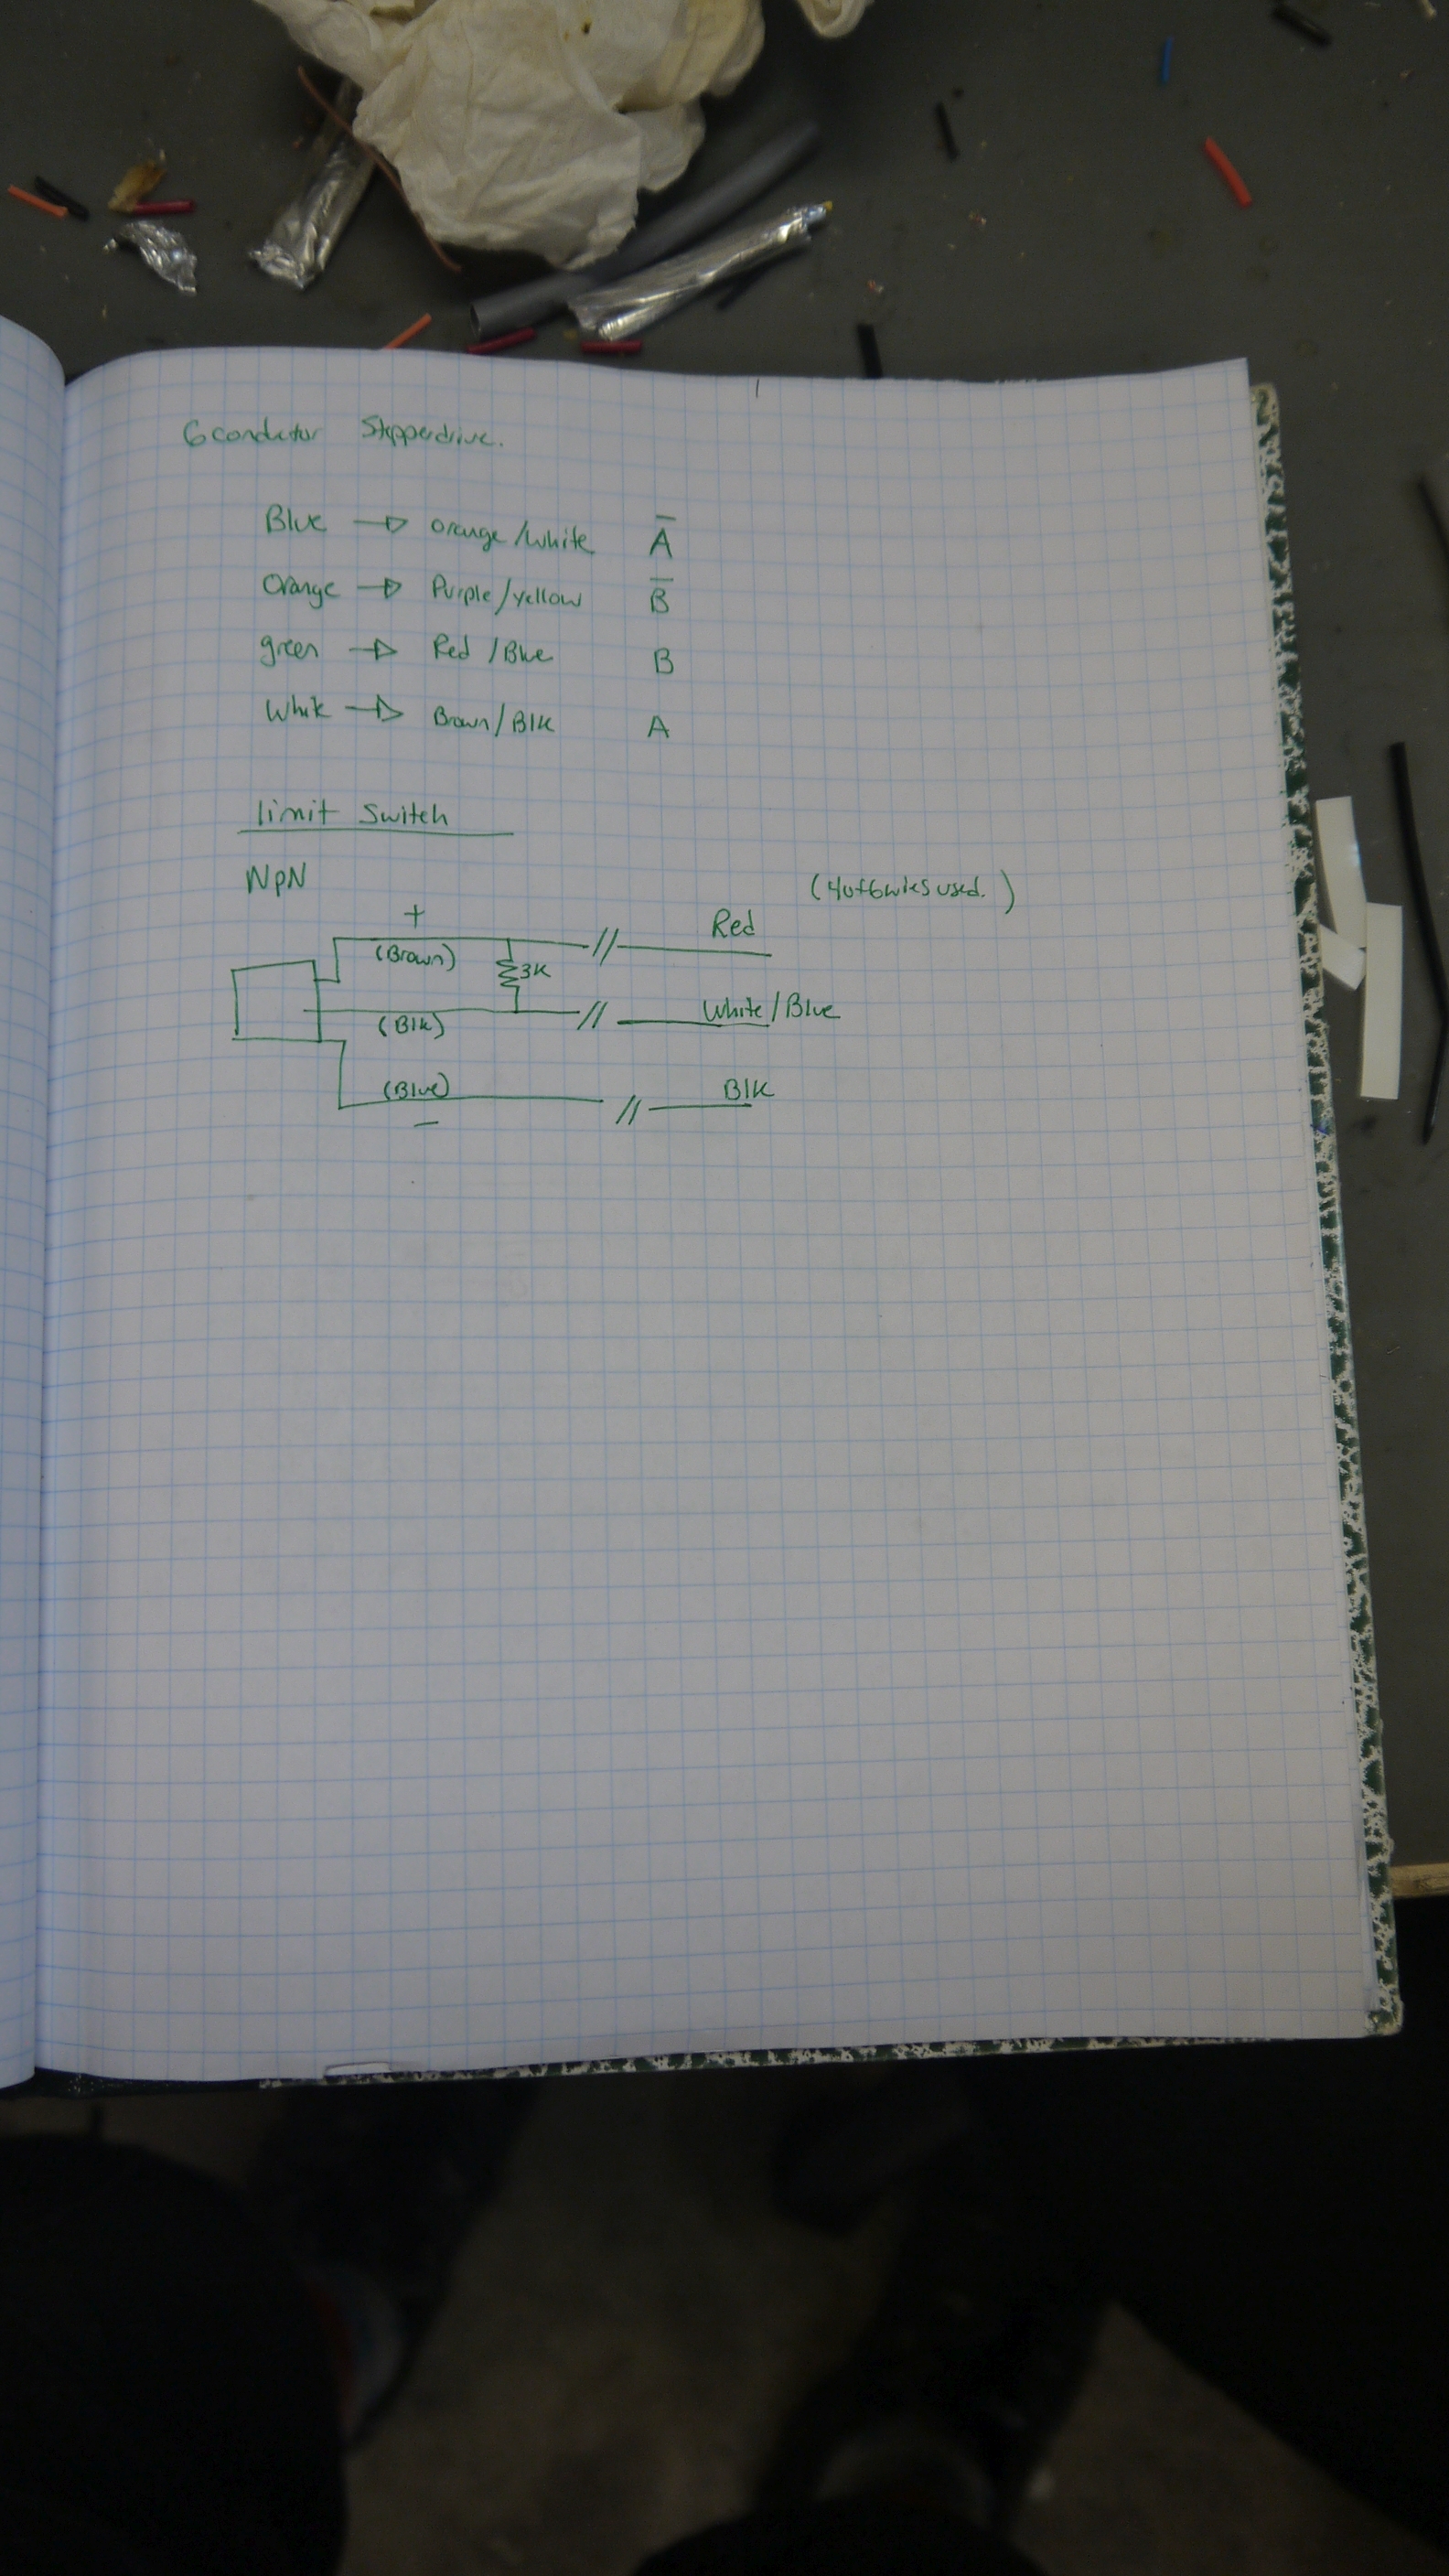 6 conductor Stepperdrive.
Blue → orange/white A̅
Orange → Purple/yellow B̅
green → Red/Blue B
White → Brown/Blk A
limit Switch
NPN
(4 of 6 wires used.)
+
Red
(Brown)
3K
White/Blue
(Blk)
(Blue)
Blk
−